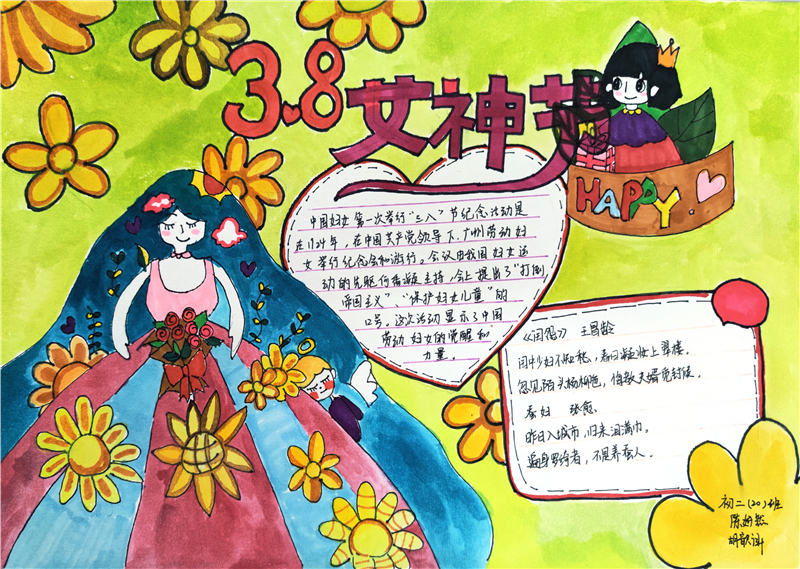 3.8女神节
HAPPY
中国妇女第一次举行"三八"节纪念活动是
在1924年，在中国共产党领导下，广州劳动妇
女举行纪念会和游行。会议由我国妇女运
动的先驱何香凝主持，会上提出了"打倒
帝国主义" "保护妇女儿童"的
口号。这次活动显示了中国
劳动妇女的觉醒和
力量。
《闺怨》 王昌龄
闺中少妇不知愁，春日凝妆上翠楼。
忽见陌头杨柳色，悔教夫婿觅封侯。
蚕妇 张俞
昨日入城市，归来泪满巾。
遍身罗绮者，不是养蚕人。
初二(20)班